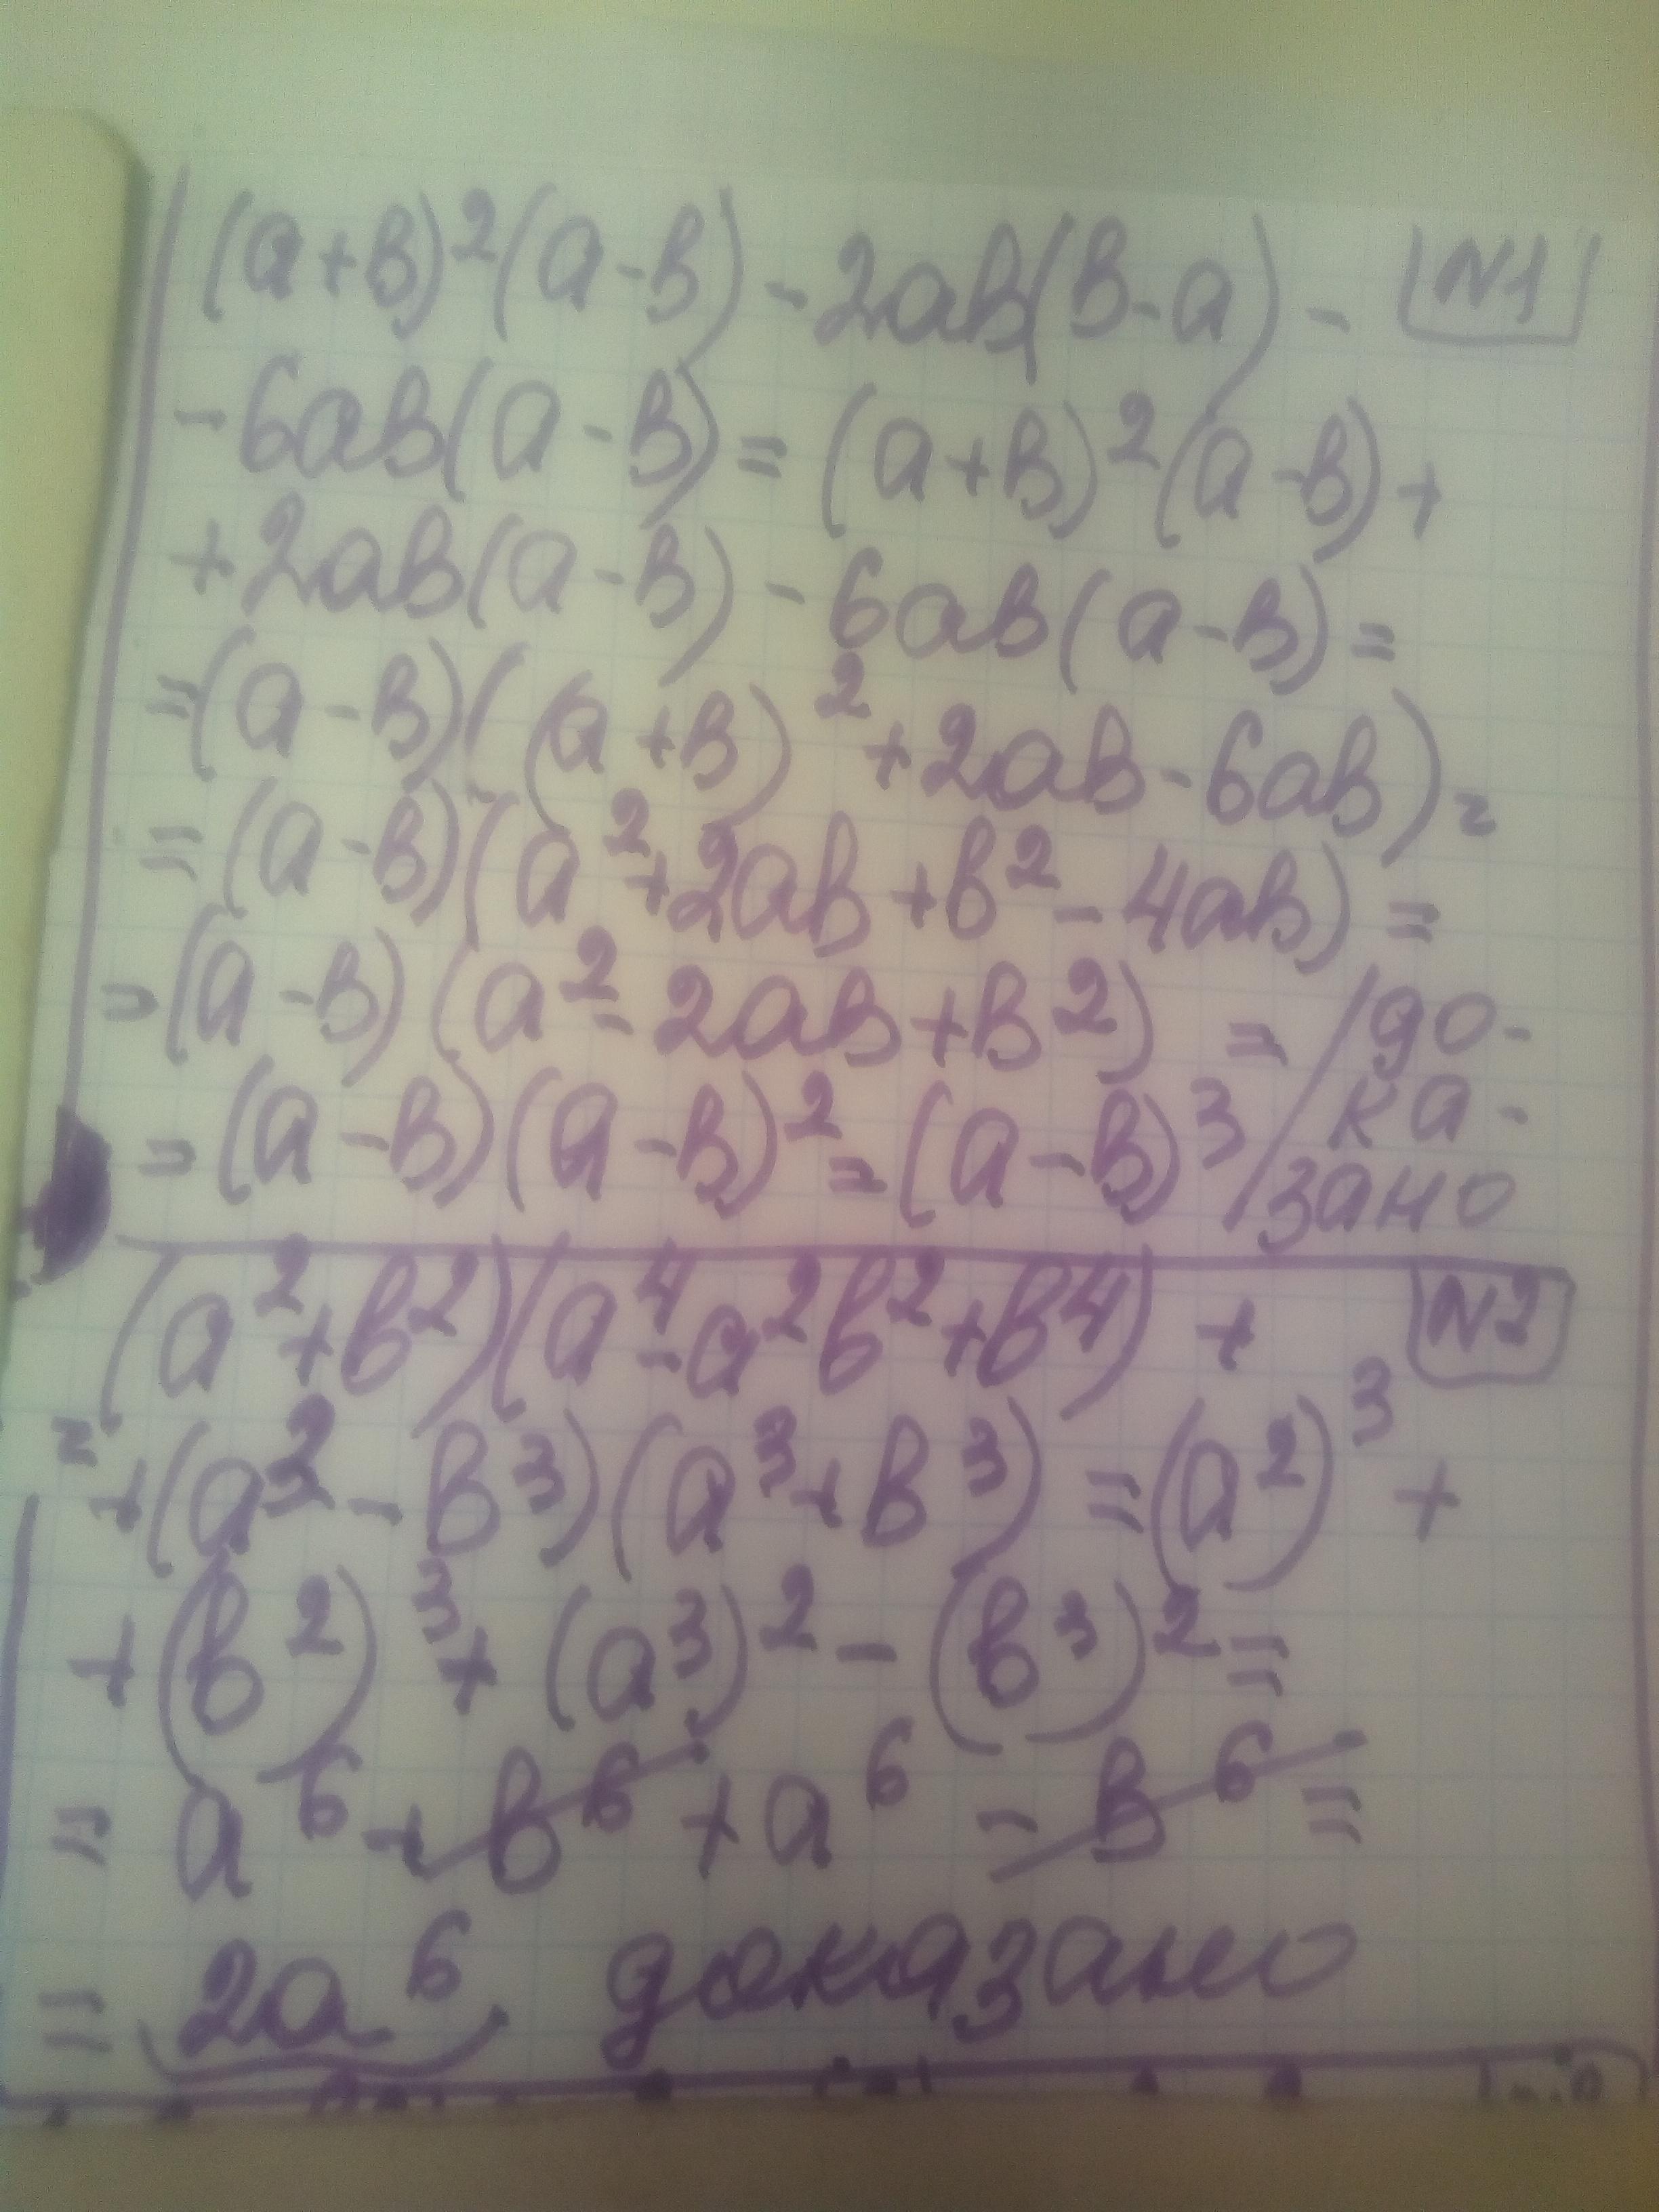 (a+b)²(a-b)-2ab(b-a)- N1
-6ab(a-b)=(a+b)²(a-b)+
+2ab(a-b)-6ab(a-b)=
=(a-b)((a+b)²+2ab-6ab)=
=(a-b)(a²+2ab+b²-4ab)=
=(a-b)(a²-2ab+b²)= /до-
=(a-b)(a-b)²=(a-b)³ /ка-
зано
(a²+b²)(a⁴-a²b²+b⁴)+ N2
=+(a³-b³)(a³+b³)=(a²)³+
+(b²)³+(a³)²-(b³)²=
=a⁶+b⁶+a⁶-b⁶=
=2a⁶. доказано